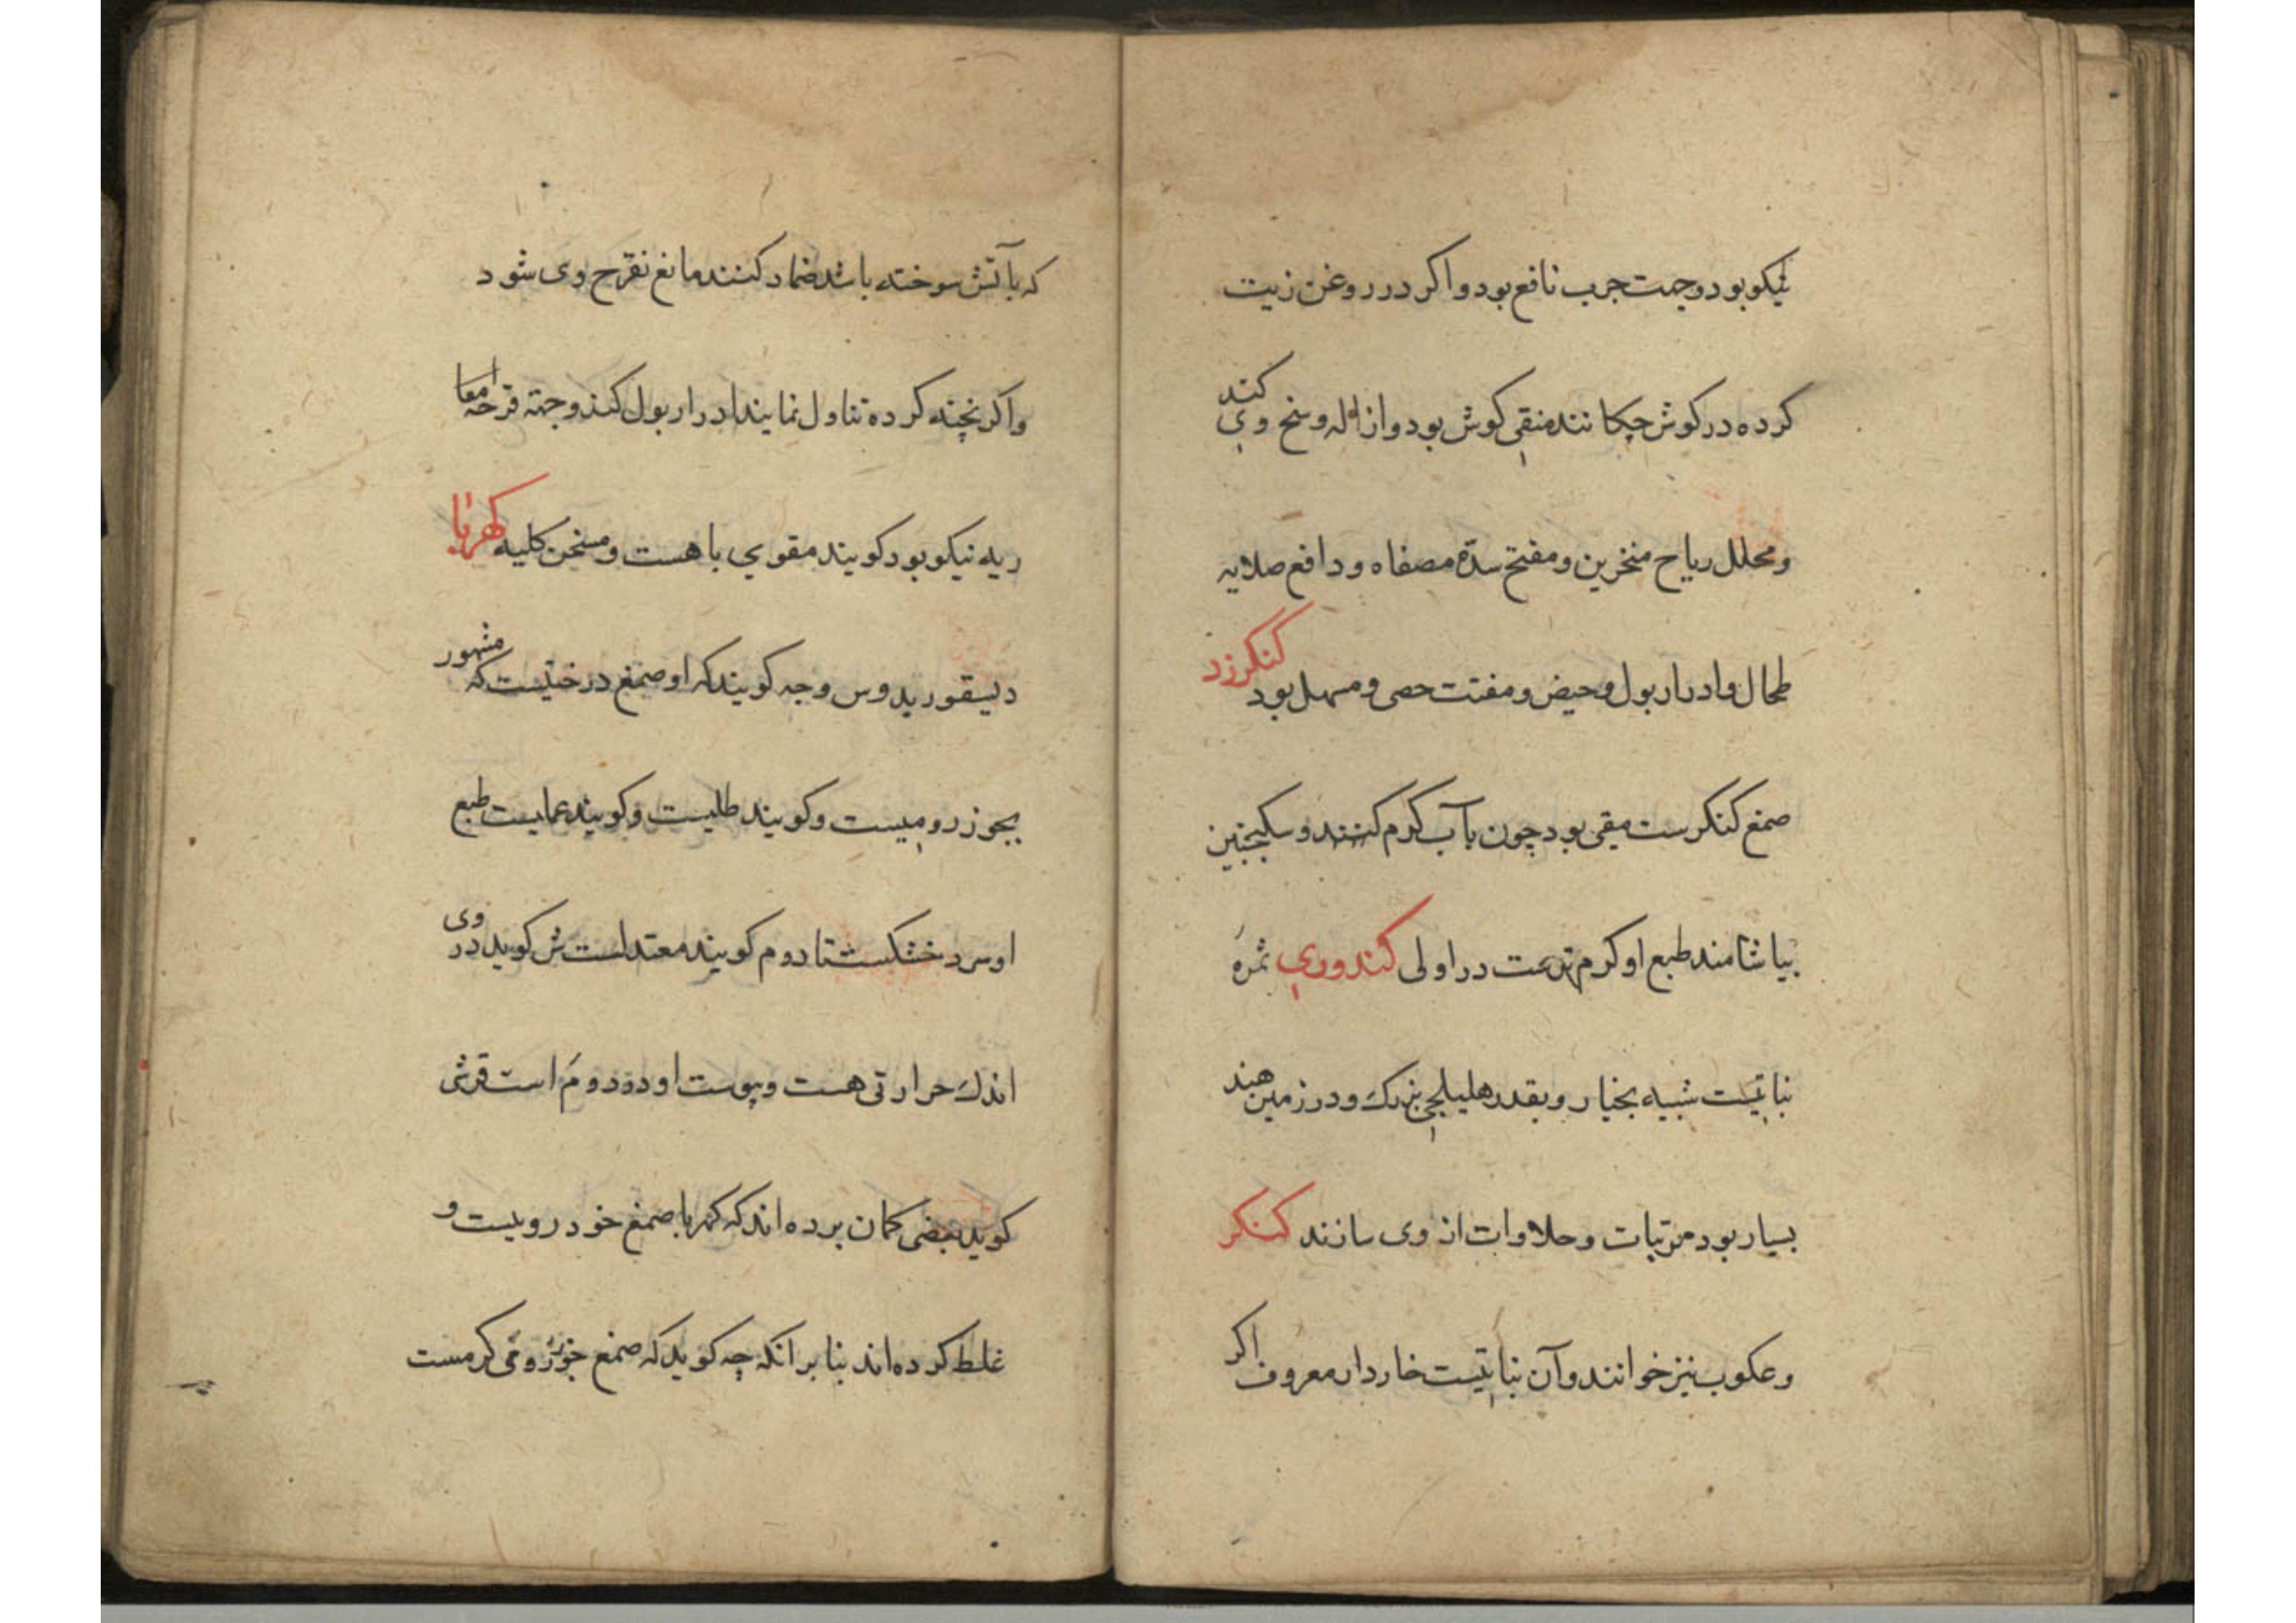 نیکو بود وجهت جرب نافع بود واکر در روغن زیت
کرده در کوش چکانند منقی کوش بود وازاله وسخ وی کند
ومحلل ریاح منخرین ومفتح سدّهٔ مصفاه ودافع صلابه
طحال وادرار بول وحیض ومفتت حصی ومسهل بود کنکرزد
صمغ کنکرست مقی بود چون بآب کرم کنند وسکنجبین
بیاشامند طبع او کرم ترست در اولی کندوری ثمرهٔ
نباتیست شبیه بخیار وبقدر هلیلجی بزرک ودر زمین هند
بسیار بود مربّیات وحلاوات از وی سازند کنکر
وعکوب نیز خوانند وآن نباتیست خاردار معروف اکر
که بآتش سوخته باشد ضماد کنند مانع تقرّح وی شود
واکر پخته کرده تناول نمایند ادرار بول کند وجهة قرحهٔ امعا
ریه نیکو بود کویند مقوی باهست ومسخن کلیه کهربا
دیسقوریدوس وجه کویند که او صمغ درختیست که مشهور
بجوز رومیست وکویند طلیست وکویند عماییست طبع
او سرد خشکست تا دوم کویند معتدلست ش کوید در وی
اندک حرارتی هست ویبوست او در دوم است قرشی
کوید بعضی کمان برده اند که کهربا صمغ خود رومیست و
غلط کرده اند بنا بر آنکه چه کوید که صمغ جوز رومی کرمست